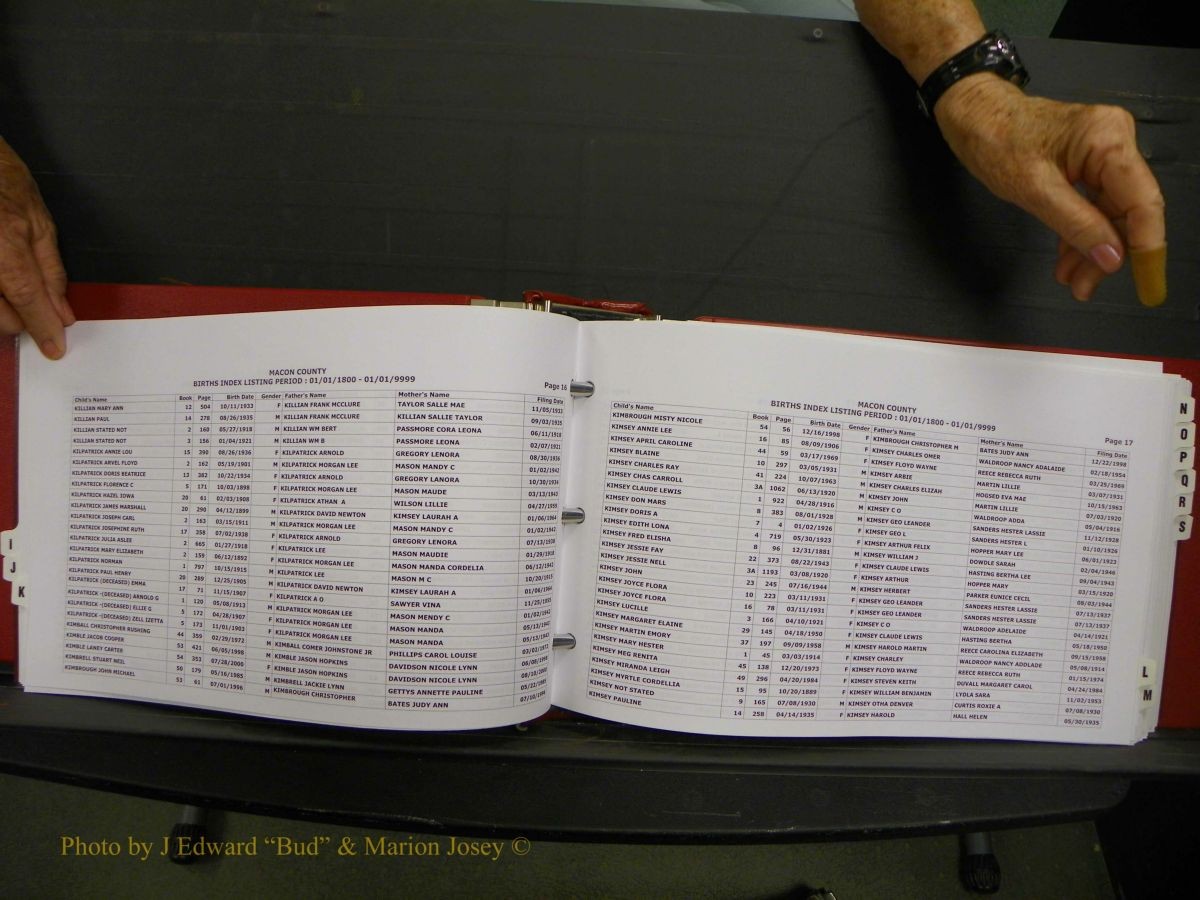 MACON COUNTY
BIRTHS INDEX LISTING PERIOD : 01/01/1800 - 01/01/9999
Page 16
Child's Name Book Page Birth Date Gender Father's Name Mother's Name Filing Date
KILLIAN MARY ANN 12 504 10/11/1933 F KILLIAN FRANK MCCLURE TAYLOR SALLE MAE 11/05/1933
KILLIAN PAUL 14 278 08/26/1935 M KILLIAN FRANK MCCLURE KILLIAN SALLIE TAYLOR 09/03/1935
KILLIAN STATED NOT 2 160 05/27/1918 M KILLIAN WM BERT PASSMORE CORA LEONA 06/11/1918
KILLIAN STATED NOT 3 156 01/04/1921 M KILLIAN WM B PASSMORE LEONA 02/07/1921
KILPATRICK ANNIE LOU 15 390 08/26/1936 F KILPATRICK ARNOLD GREGORY LENORA 08/30/1936
KILPATRICK ARVEL FLOYD 2 162 05/19/1901 M KILPATRICK MORGAN LEE MASON MANDY C 01/02/1942
KILPATRICK DORIS BEATRICE 13 382 10/22/1934 F KILPATRICK ARNOLD GREGORY LANORA 10/30/1934
KILPATRICK FLORENCE C 5 171 10/03/1898 F KILPATRICK MORGAN LEE MASON MAUDE 03/13/1943
KILPATRICK HAZEL IOWA 20 61 02/03/1908 F KILPATRICK ATHAN A WILSON LILLIE 04/27/1959
KILPATRICK JAMES MARSHALL 20 290 04/12/1899 M KILPATRICK DAVID NEWTON KIMSEY LAURAH A 01/06/1964
KILPATRICK JOSEPH CARL 2 163 03/15/1911 M KILPATRICK MORGAN LEE MASON MANDY C 01/02/1942
KILPATRICK JOSEPHINE RUTH 17 258 07/02/1938 F KILPATRICK ARNOLD GREGORY LENORA 07/13/1938
KILPATRICK JULIA ASLEE 2 665 01/27/1918 F KILPATRICK LEE MASON MAUDIE 01/29/1918
KILPATRICK MARY ELIZABETH 2 159 06/12/1892 F KILPATRICK MORGAN LEE MASON MANDA CORDELIA 06/12/1942
KILPATRICK NORMAN 1 797 10/15/1915 M KILPATRICK LEE MASON M C 10/20/1915
KILPATRICK PAUL HENRY 20 289 12/25/1905 M KILPATRICK DAVID NEWTON KIMSEY LAURAH A 01/06/1964
KILPATRICK (DECEASED) EMMA 17 71 11/15/1907 F KILPATRICK A O SAWYER VINA 11/25/1955
KILPATRICK -(DECEASED) ARNOLD G 1 120 05/08/1913 M KILPATRICK MORGAN LEE MASON MENDY C 01/02/1942
KILPATRICK -(DECEASED) ELLIE G 5 172 04/28/1907 F KILPATRICK MORGAN LEE MASON MANDA 05/13/1943
KILPATRICK -(DECEASED) ZELL IZETTA 5 173 11/01/1903 F KILPATRICK MORGAN LEE MASON MANDA 05/13/1943
KIMBALL CHRISTOPHER RUSHING 44 359 02/29/1972 M KIMBALL COMER JOHNSTONE JR PHILLIPS CAROL LOUISE 03/02/1972
KIMBLE JACOB COOPER 53 421 06/05/1998 M KIMBLE JASON HOPKINS DAVIDSON NICOLE LYNN 06/08/1998
KIMBLE LANEY CARTER 54 353 07/28/2000 F KIMBLE JASON HOPKINS DAVIDSON NICOLE LYNN 08/10/2000
KIMBRELL STUART NEIL 50 179 05/16/1985 M KIMBRELL JACKIE LYNN GETTYS ANNETTE PAULINE 05/22/1985
KIMBROUGH JOHN MICHAEL 53 61 07/01/1996 M KIMBROUGH CHRISTOPHER BATES JUDY ANN 07/10/1996
I
J
K
MACON COUNTY
BIRTHS INDEX LISTING PERIOD : 01/01/1800 - 01/01/9999
Page 17
Child's Name Book Page Birth Date Gender Father's Name Mother's Name Filing Date
KIMBROUGH MISTY NICOLE 54 56 12/16/1998 F KIMBROUGH CHRISTOPHER M BATES JUDY ANN 12/22/1998
KIMSEY ANNIE LEE 16 85 08/09/1906 F KIMSEY CHARLES OMER WALDROOP NANCY ADALAIDE 02/18/1954
KIMSEY APRIL CAROLINE 44 59 03/17/1969 F KIMSEY FLOYD WAYNE REECE REBECCA RUTH 03/25/1969
KIMSEY BLAINE 10 297 03/05/1931 M KIMSEY ARBIE MARTIN LILLIE 03/07/1931
KIMSEY CHARLES RAY 41 224 10/07/1963 M KIMSEY CHARLES ELIZAH HOGSED EVA MAE 10/15/1963
KIMSEY CHAS CARROLL 3A 1062 06/13/1920 M KIMSEY JOHN MARTIN LILLIE 07/03/1920
KIMSEY CLAUDE LEWIS 1 922 04/28/1916 M KIMSEY C O WALDROOP ADDA 05/04/1916
KIMSEY DON MARS 8 383 08/01/1928 M KIMSEY GEO LEANDER SANDERS HESTER LASSIE 11/12/1928
KIMSEY DORIS A 7 4 01/02/1926 F KIMSEY GEO L SANDERS HESTER L 01/10/1926
KIMSEY EDITH LONA 4 719 05/30/1923 F KIMSEY ARTHUR FELIX HOPPER MARY LEE 06/01/1923
KIMSEY FRED ELISHA 8 96 12/31/1881 M KIMSEY WILLIAM J DOWDLE SARAH 02/04/1946
KIMSEY JESSIE FAY 22 373 08/22/1943 F KIMSEY CLAUDE LEWIS HASTING BERTHA LEE 09/04/1943
KIMSEY JESSIE NELL 3A 1193 03/08/1920 F KIMSEY ARTHUR HOPPER MARY 03/15/1920
KIMSEY JOHN 23 245 07/16/1944 M KIMSEY HERBERT PARKER EUNICE CECIL 08/03/1944
KIMSEY JOYCE FLORA 10 223 03/11/1931 F KIMSEY GEO LEANDER SANDERS HESTER LASSIE 07/13/1937
KIMSEY JOYCE FLORA 16 78 03/11/1931 F KIMSEY GEO LEANDER SANDERS HESTER LASSIE 07/13/1937
KIMSEY LUCILLE 3 166 04/10/1921 F KIMSEY C O WALDROOP ADELAIDE 04/14/1921
KIMSEY MARGARET ELAINE 29 145 04/18/1950 F KIMSEY CLAUDE LEWIS HASTING BERTHA 05/18/1950
KIMSEY MARTIN EMORY 37 197 09/09/1958 M KIMSEY HAROLD MARTIN REECE CAROLINA ELIZABETH 09/15/1958
KIMSEY MARY HESTER 1 45 03/03/1914 F KIMSEY CHARLEY WALDROOP NANCY ADDLADE 05/08/1914
KIMSEY MEG RENITA 45 138 12/20/1973 F KIMSEY FLOYD WAYNE REECE REBECCA RUTH 01/15/1974
KIMSEY MIRANDA LEIGH 49 296 04/20/1984 F KIMSEY STEVEN KEITH DUVALL MARGARET CAROL 04/24/1984
KIMSEY MYRTLE CORDELLIA 15 95 10/20/1889 F KIMSEY WILLIAM BENJAMIN LYDLA SARA 11/02/1953
KIMSEY NOT STATED 9 165 07/08/1930 M KIMSEY OTHA DENVER CURTIS ROXIE A 07/08/1930
KIMSEY PAULINE 14 258 04/14/1935 F KIMSEY HAROLD HALL HELEN 05/30/1935
N
O
P
Q
R
S
L
M
Photo by J Edward “Bud” & Marion Josey ©